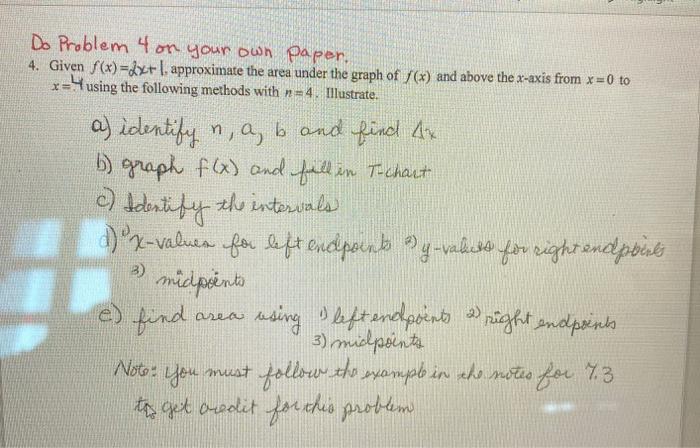 Do Problem 4 on your own paper.
4. Given f(x)=2x+1, approximate the area under the graph of f(x) and above the x-axis from x=0 to
x=4 using the following methods with n=4. Illustrate.
a) identify n, a, b and find Δx
b) graph f(x) and fill in T-chart
c) Identify the intervals
d) 1) x-values for left endpoints 2) y-values for right endpoints
3) midpoints
e) find area using 1) left endpoints 2) right endpoints
3) midpoints
Note: you must follow the example in the notes for 7.3
to get credit for this problem